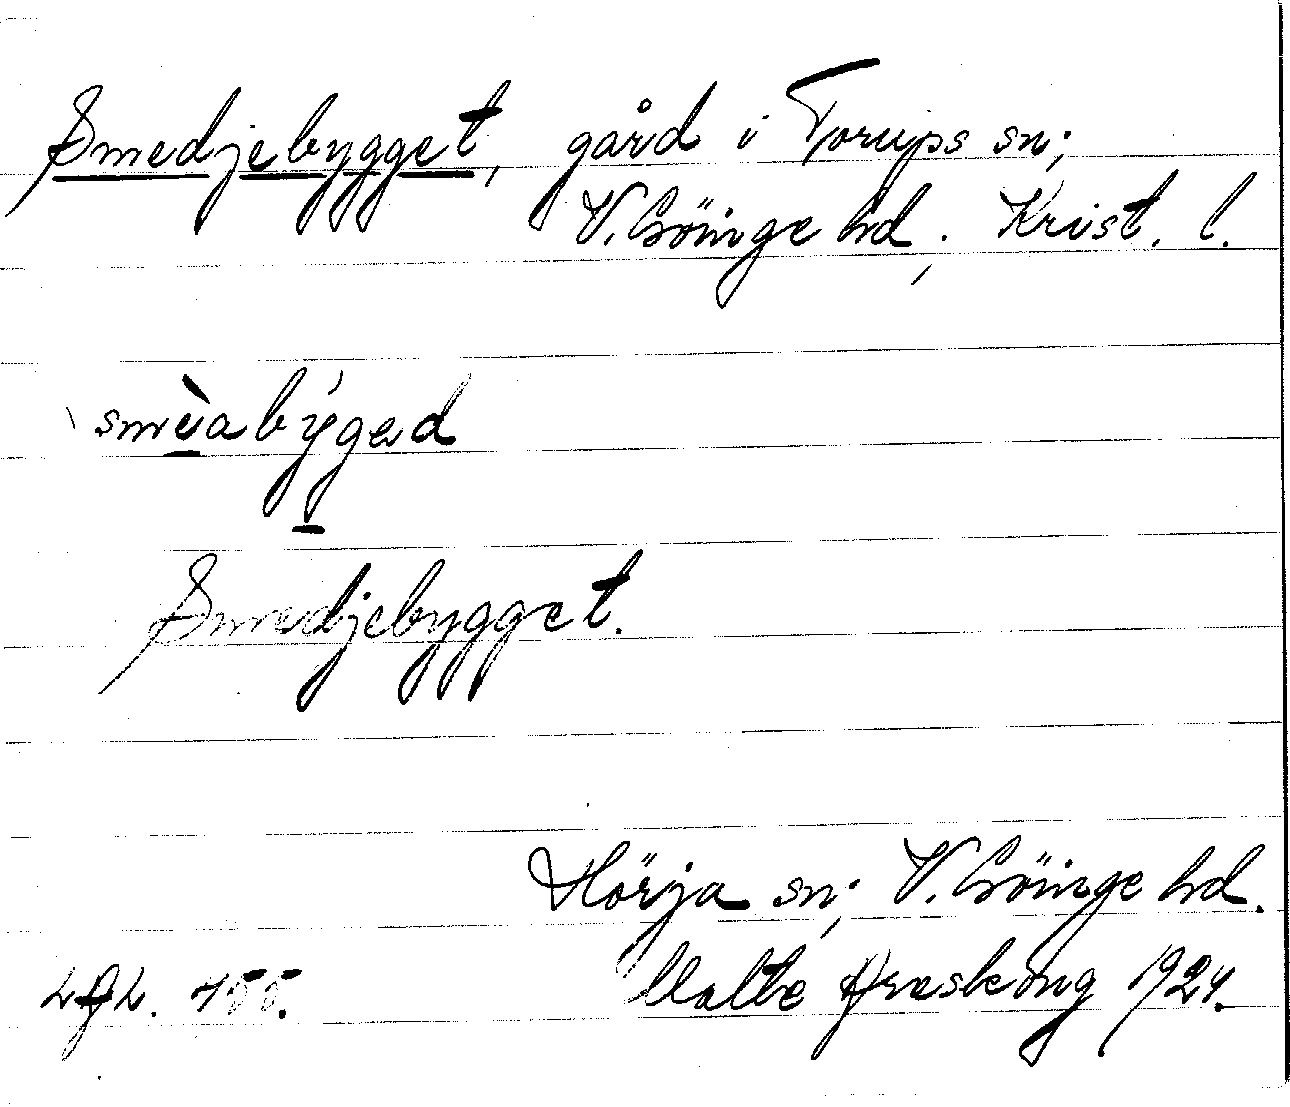 Smedjebygget, gård i Torups sn;
V. Göinge hd, Krist. l.
smèabýged
Smedjebygget.
Hörja sn; V. Göinge hd.
Malte Areskoug 1924.